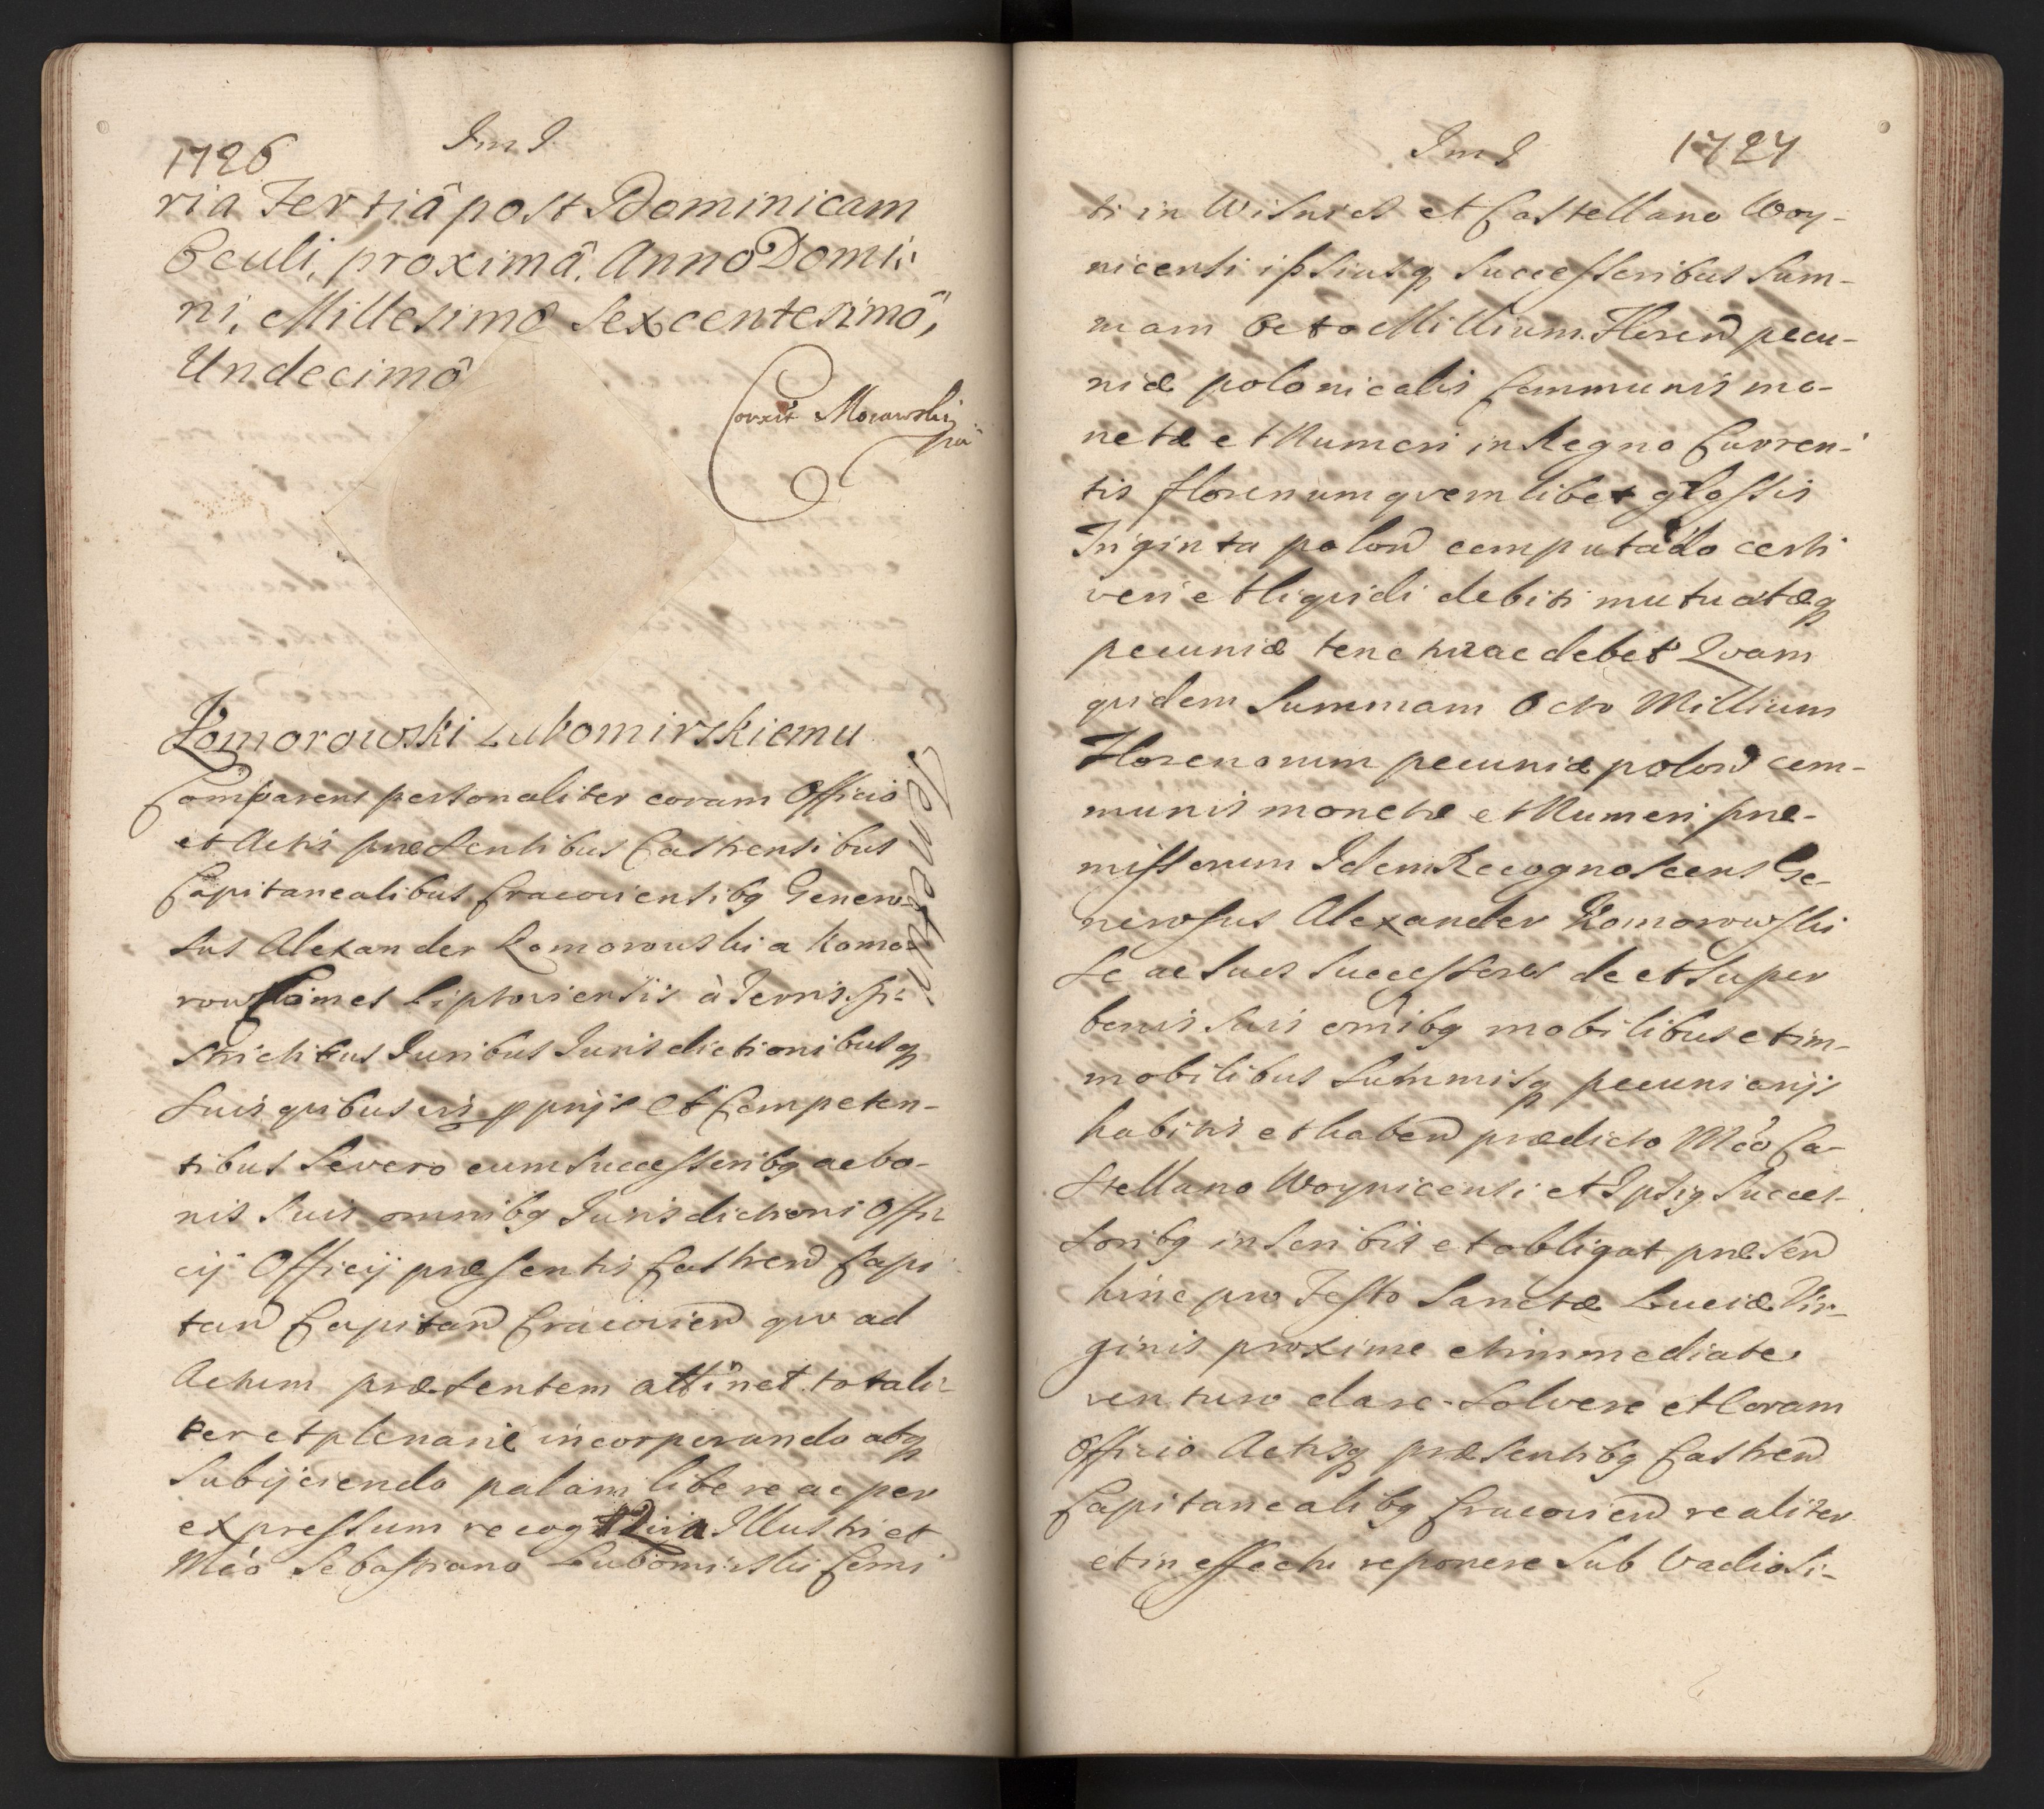 1726
ImJ
ria Tertiâ post Dominicam
Oculi, proximâ, Annô Domi:
ni, Millesimô Sexcentesimô,
Undecimô
Corrxit Morawski
Komorowski Lubomirskiemu
Tenetur
Comparens personaliter coram Officio
et Actis præsentibus Castrensibus
Capitanealibus Cracoviensibq Genero-
sus Alexander Komorowski a Komo-
row Comes Liptoviensis à Terris
strictibus Juribus Jurisdictionibusq
suis quibusvis pprijs et Competen-
tibus Severo cum successoribq ac bo-
nis suis omnibq Jurisdictioni Offi-
cij Officij præsentis Castren Capi
tan Capitan Cracovien quo ad
Actum præsentem attinet totali-
ter et plenarie incorporando atq
subijciendo palam libere ac per
expressum recog Illustri et
Mco Sebastiano Lubomirski Comi
ImJ
1727
ti in Wisnicz et Castellano Woy-
nicensi ipsiusq successoribus sum-
mam Octo Millium Floren pecu-
niæ polonicalis Communis mo-
netæ et Numeri in Regno Curren-
tis florenum quemlibet grossis
Triginta polon computando certi
veri et liquidi debiti mutuatæq
pecuniæ tenetur ac debet Quam
quidem summam Octo Millium
Florenorum pecuniæ polon com-
munis monetæ et Numeri præ-
missorum Idem Recognoscens Ge-
nerosus Alexander Komorowski
se ac suos successores de et super
bonis suis omibq mobilibus et im-
mobilibus summisq pecuniarijs
habitis et haben prædicto Mco Ca-
stellano Woynicensi et Ipsiq succes-
soribq inscribit et obligat præsen
hinc pro Festo Sanctæ Luciæ Vir-
ginis proxime et immediate
venturo dare solvere et Coram
Officio Actisq præsentibq Castren
Capitanealibq Cracovien realiter
et in effectu reponere sub Vadio si-